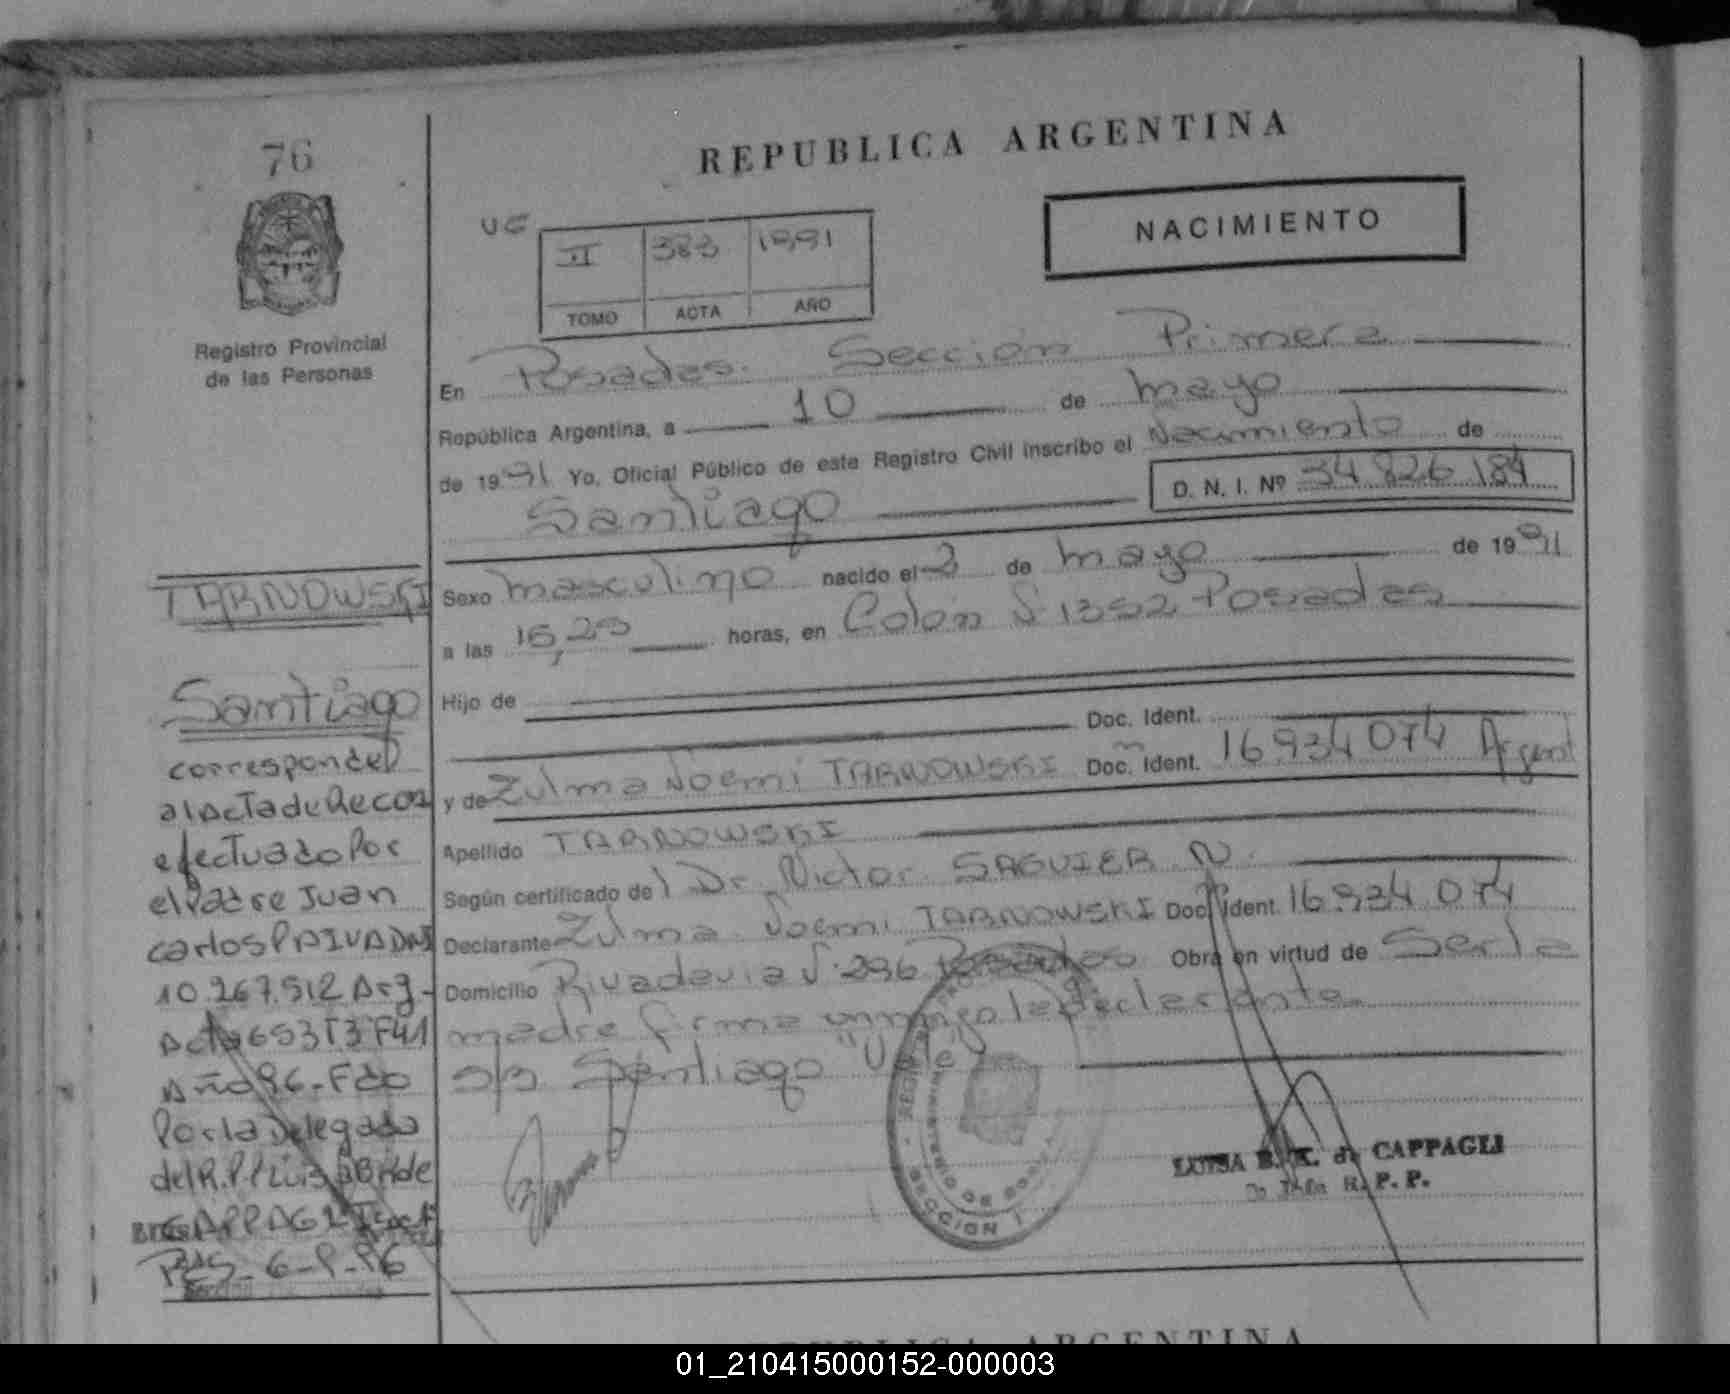 76
REPUBLICA ARGENTINA
NACIMIENTO
UG
II 383 1991
TOMO ACTA AÑO
Registro Provincial
de las Personas
En Posadas. Sección Primera
República Argentina, a 10 de mayo
de 1991 Yo, Oficial Público de este Registro Civil inscribo el Nacimiento de
Santiago
D. N. I. Nº 34 826 184
Sexo masculino nacido el 2 de mayo de 1991
a las 15,25 horas, en Colón Nº 1352 Posadas
Hijo de
Doc. Ident.
y de Zulma Noemi TARNOWSKI Doc. Ident. 16.934 074 Argent
Apellido TARNOWSKI
Según certificado del Dr. Victor SAGUIER N.
Declarante Zulma Noemi TARNOWSKI Doc. Ident. 16.934 074
Domicilio Rivadavia Nº 296 Posadas Obra en virtud de Ser la
madre firma conmigo la declarante
s/b Santiago "Vale"
TARNOWSKI
Santiago
corresponde
al Acta de Recon
efectuado Por
el Padre Juan
carlos PAIVA DNI
10.267.512 Arg-
Acta 653 T3 F41
Año 96-Fdo
Por la Delegada
del R.P.P Luisa B K de
CAPPAGLI
Pdas- 6-9-96
SECCION 1
LUISA B. K. de CAPPAGLI
R. P. P.
REPUBLICA ARGENTINA
01_210415000152-000003